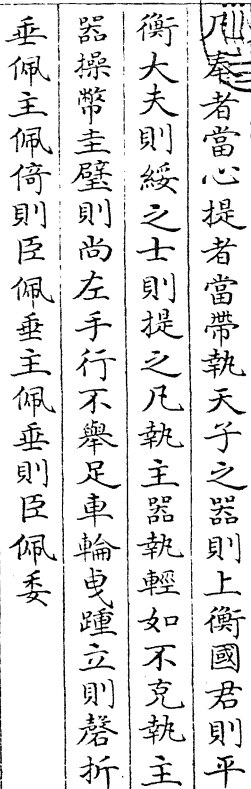 凡奉者當心提者當帶執天子之器則上衡國君則平
衡大夫則綏之士則提之凡執主器執輕如不克執主
器操幣圭璧則尚左手行不舉足車輪曳踵立則磬折
垂佩主佩倚則臣佩垂主佩垂則臣佩委